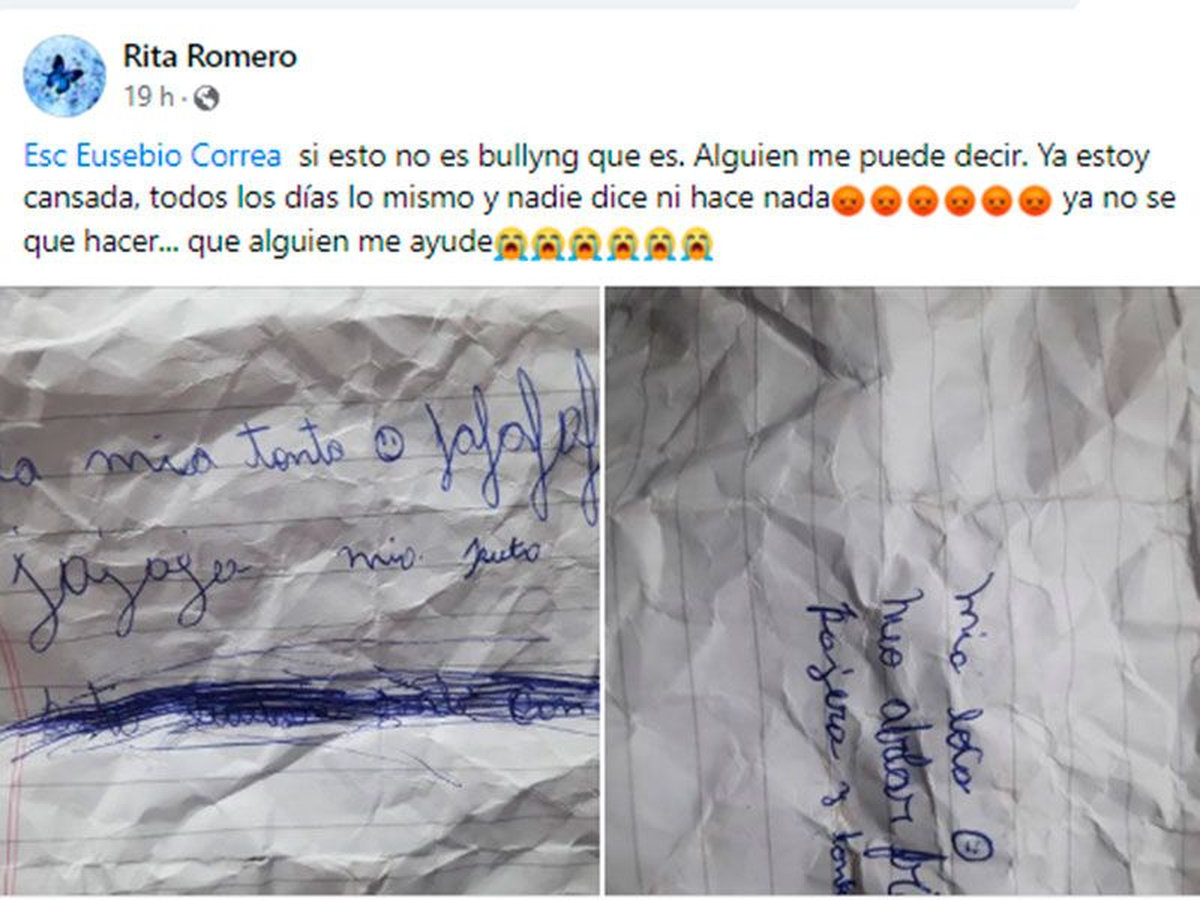 Rita Romero
19 h ·
Esc Eusebio Correa si esto no es bullyng que es. Alguien me puede decir. Ya estoy
cansada, todos los días lo mismo y nadie dice ni hace nada😡😡😡😡😡😡 ya no se
que hacer... que alguien me ayude😭😭😭😭😭😭
mia tonto
jajaja mia puto
mia loca
pajera y